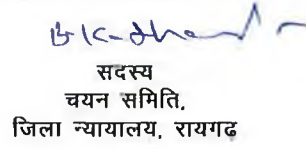 सदस्य
चयन समिति,
जिला न्यायालय, रायगढ़